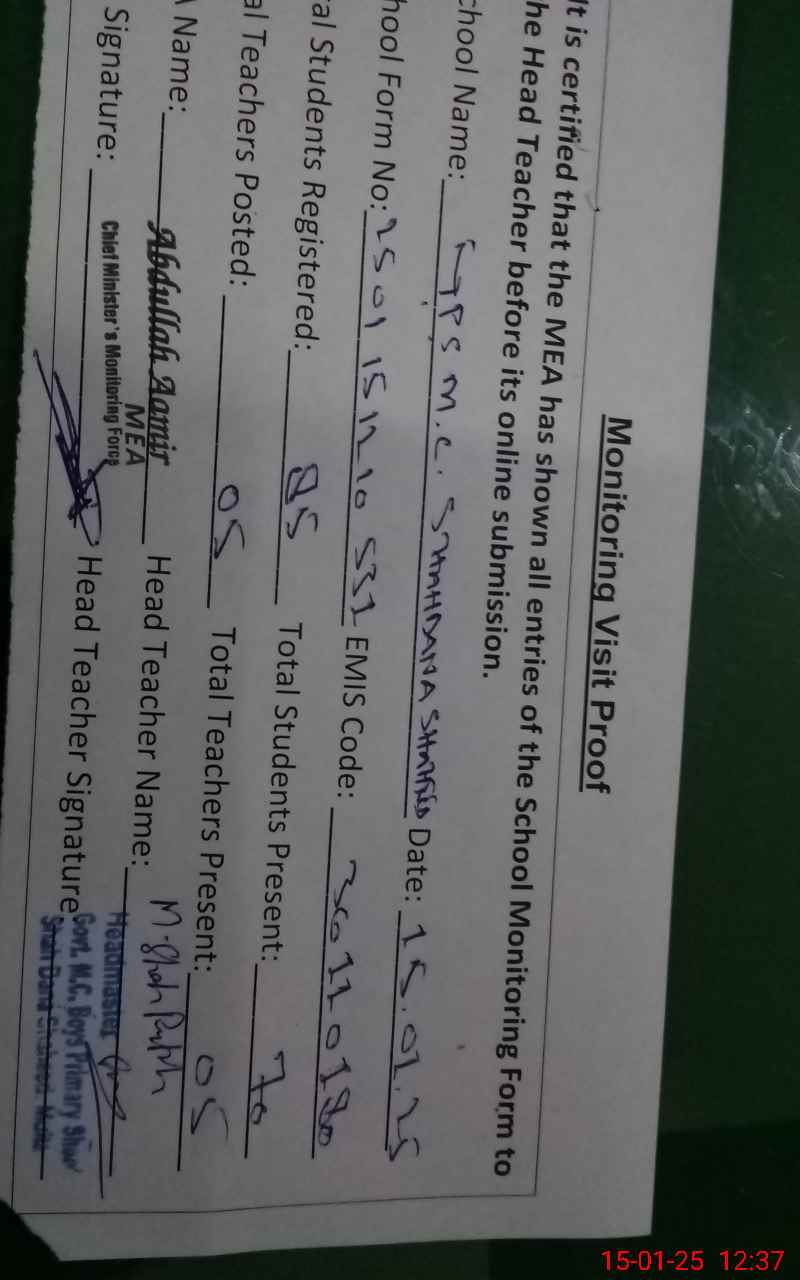 Monitoring Visit Proof
It is certified that the MEA has shown all entries of the School Monitoring Form to
he Head Teacher before its online submission.
chool Name: GPS M.C. SHAH DANA SHAHEED Date: 15.01.25
hool Form No: 25 01 15 12 10 531 EMIS Code:
al Students Registered: 85 Total Students Present: 70
al Teachers Posted: 05 Total Teachers Present: 05
A Name: Abdullah Aamir Head Teacher Name:
MEA
Chief Minister's Monitoring Force
Signature: Head Teacher Signature
Headmaster
Govt. M.C. Boys Primary
Shah Dana Shaheed
15-01-25 12:37